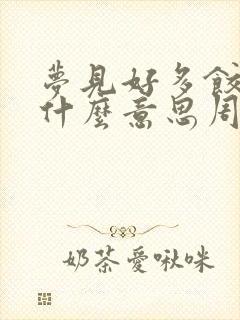 夢見好多餃
什麼意思周
奶茶愛啾咪